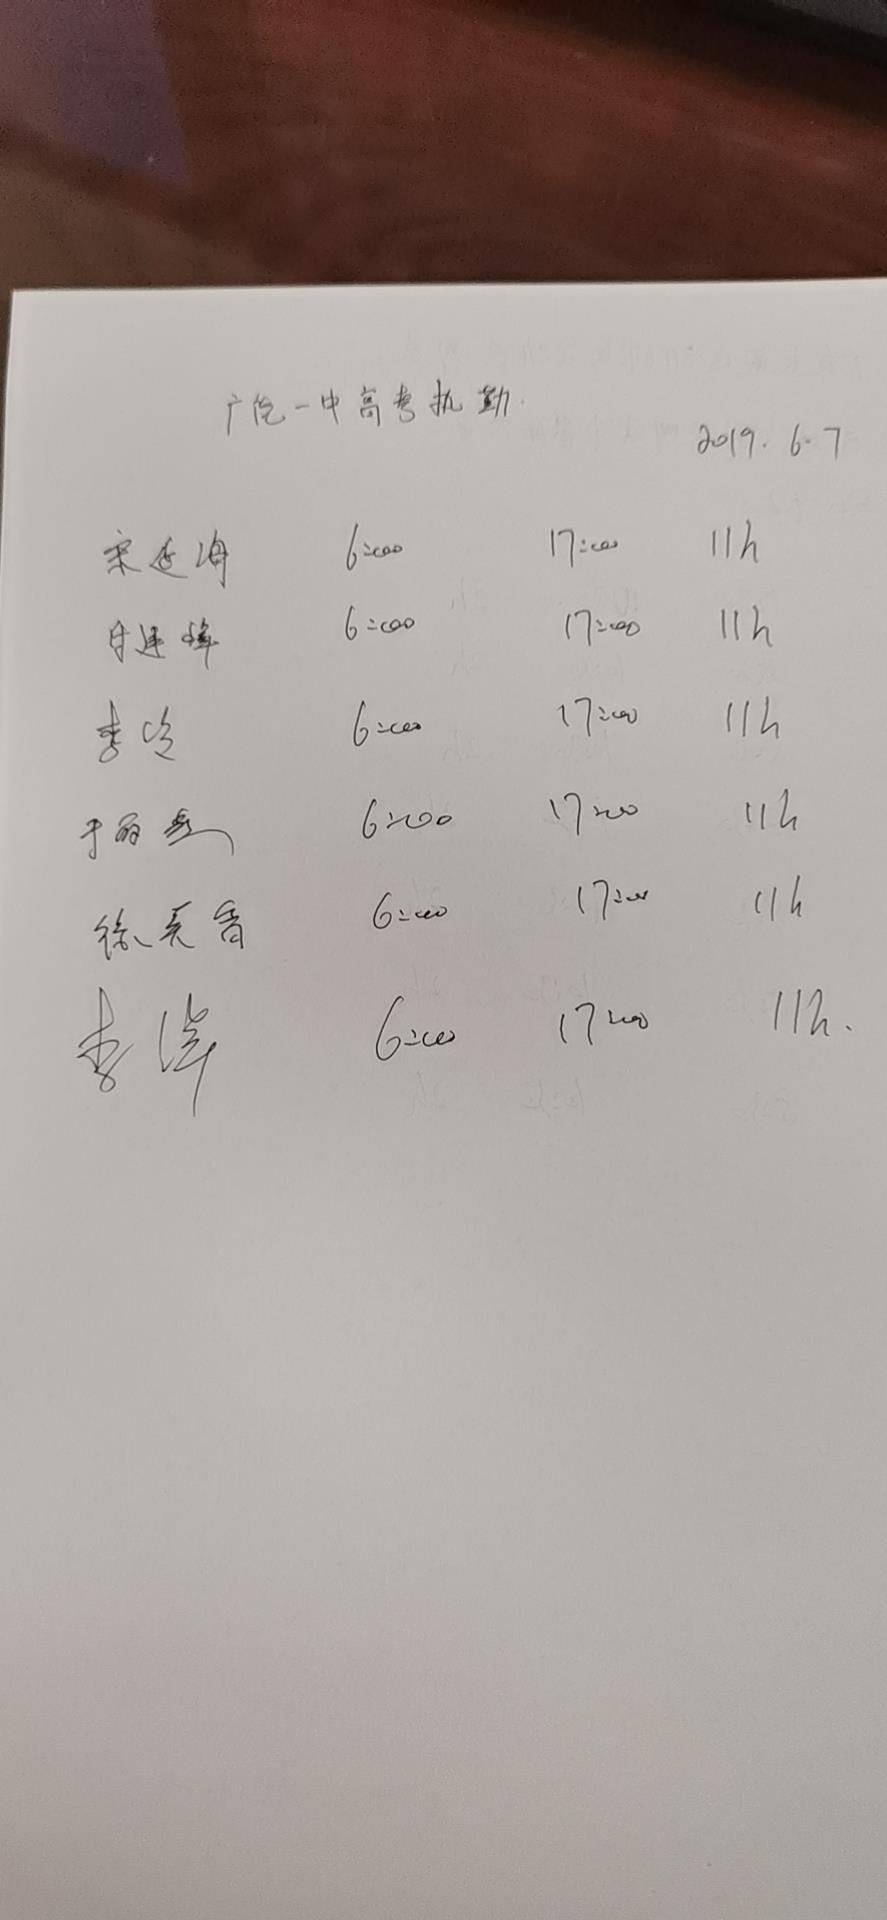 广饶一中高考执勤
2019.6.7
宋延海 6:00 17:00 11h
6:00 17:00 11h
李 6:00 17:00 11h
于丽 6:00 17:00 11h
徐美香 6:00 17:00 11h
李 6:00 17:00 11h.